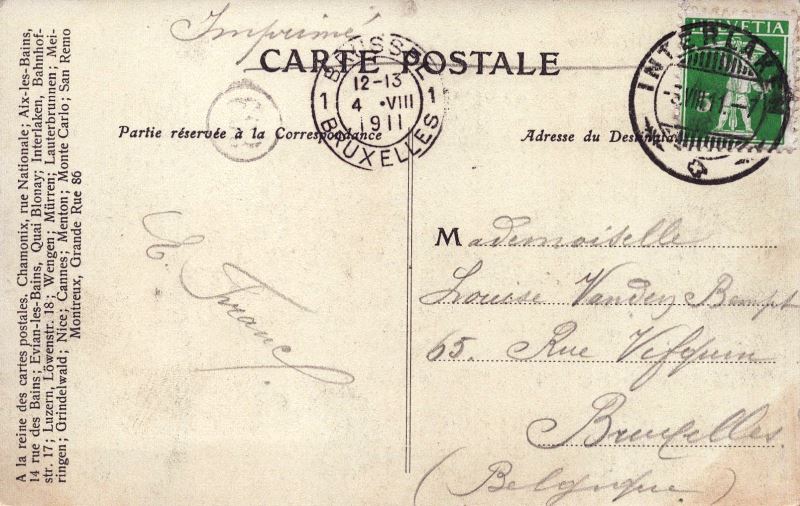 Imprimé
CARTE POSTALE
BRUSSEL
12-13
1 4 VIII 1
1911
BRUXELLES
HELVETIA
5
INTERLAKEN
VIII 11 – 7
Partie réservée à la Correspondance
Adresse du Destinata
A la reine des cartes postales. Chamonix, rue Nationale; Aix-les-Bains,
14 rue des Bains; Evian-les-Bains, Quai Blonay; Interlaken, Bahnhof-
str. 17; Luzern, Löwenstr. 18; Wengen; Mürren; Lauterbrunnen; Mei-
ringen; Grindelwald; Nice; Cannes; Menton; Monte Carlo; San Remo
Montreux, Grande Rue 86
E. Franc
Mademoiselle
Louise Vanden Bempt
65. Rue Vifquin
Bruxelles
(Belgique)